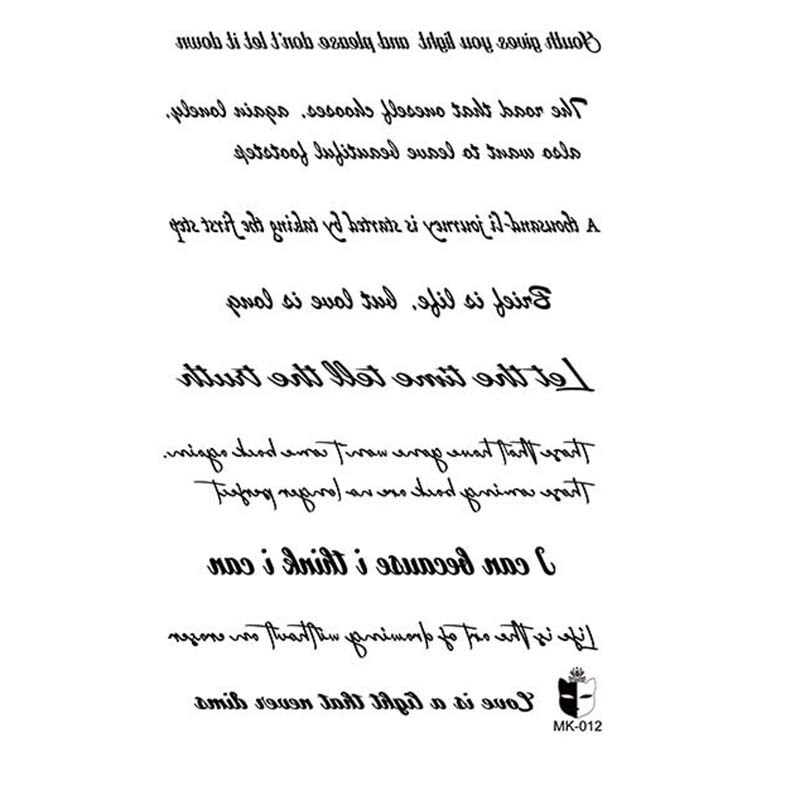 Youth gives you light and please don't let it down
The road that oneself chooses, again lonely,
also want to leave beautiful footstep
A thousand-li journey is started by taking the first step
Brief is life, but love is long
Let the time tell the truth
Those that have gone won't come back again.
Those coming back are no longer perfect
I can because i think i can
Life is the art of drawing without an eraser
Love is a light that never dims
MK-012